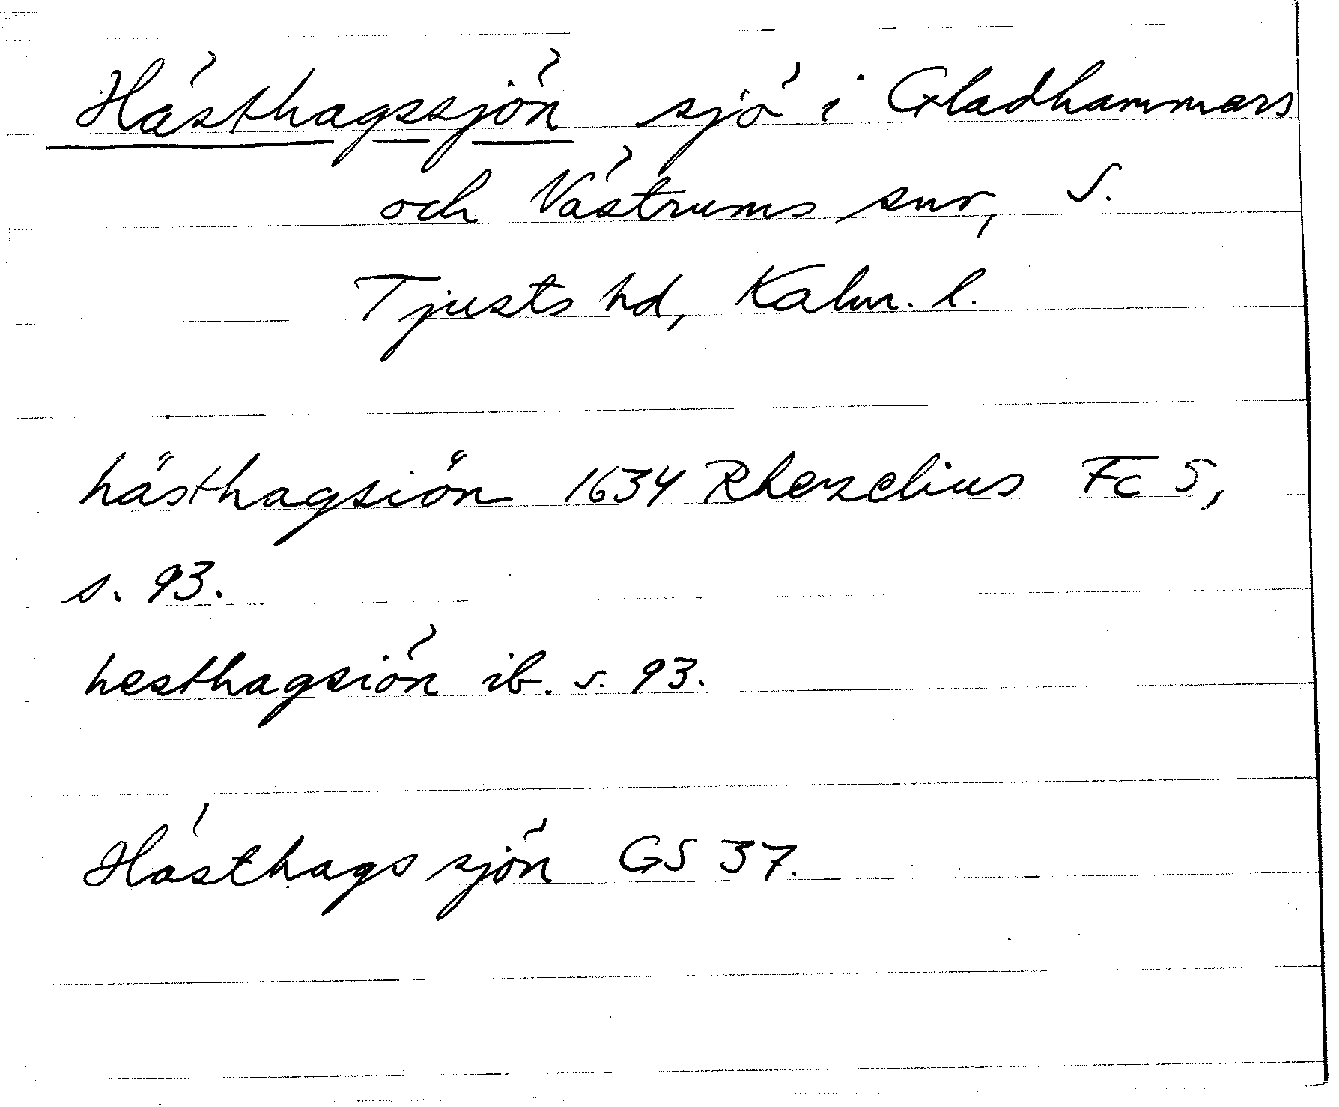 Hästhagssjön sjö i Gladhammars
och Västrums snr, S.
Tjusts hd, Kalm. l.
hästhagsiön 1634 Rhezelius Fc 5,
s. 93.
hesthagsiön ib. s. 93.
Hästhagssjön GS 37.